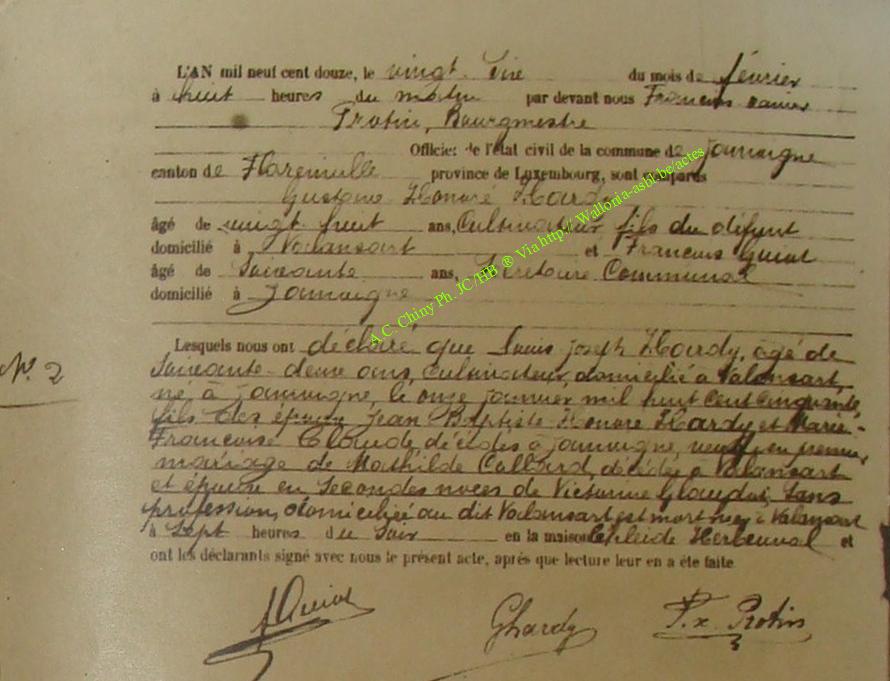 L'AN mil neuf cent douze, le vingt du mois de février
à huit heures du matin par devant nous François Xavier
Protin, Bourgmestre
Officier de l'état civil de la commune de Jamoigne
canton de Florenville province de Luxembourg, sont comparus
Gustave Honoré Hardy
âgé de vingt huit ans, Cultivateur, fils du défunt
domicilié à Valansart et François Guiot
âgé de Soixante ans, Secrétaire Communal
domicilié à Jamoigne
N° 2
Lesquels nous ont déclaré que Louis Joseph Hardy, âgé de
Soixante-deux ans, Cultivateur, domicilié à Valansart,
né à Jamoigne, le onze janvier mil huit cent cinquante,
fils des époux Jean Baptiste Honoré Hardy et Marie-
Françoise Claude décédés à Jamoigne, veuf en premier
mariage de Mathilde Collard, décédée à Valansart
et époux en Secondes noces de Victorine Glaudot, Sans
profession, domiciliée au dit Valansart, est mort hier à Valansart
à Sept heures du Soir en la maison et
ont les déclarants signé avec nous le présent acte, après que lecture leur en a été faite.
f Guiot
GHardy
F. x. Protin
A.C. Chiny Ph. JC/HB ® Via http:// Wallonia-asbl.be/actes